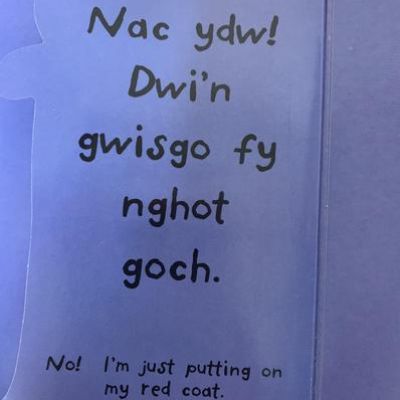 Nac ydw!
Dwi'n
gwisgo fy
nghot
goch.
No! I'm just putting on
my red coat.